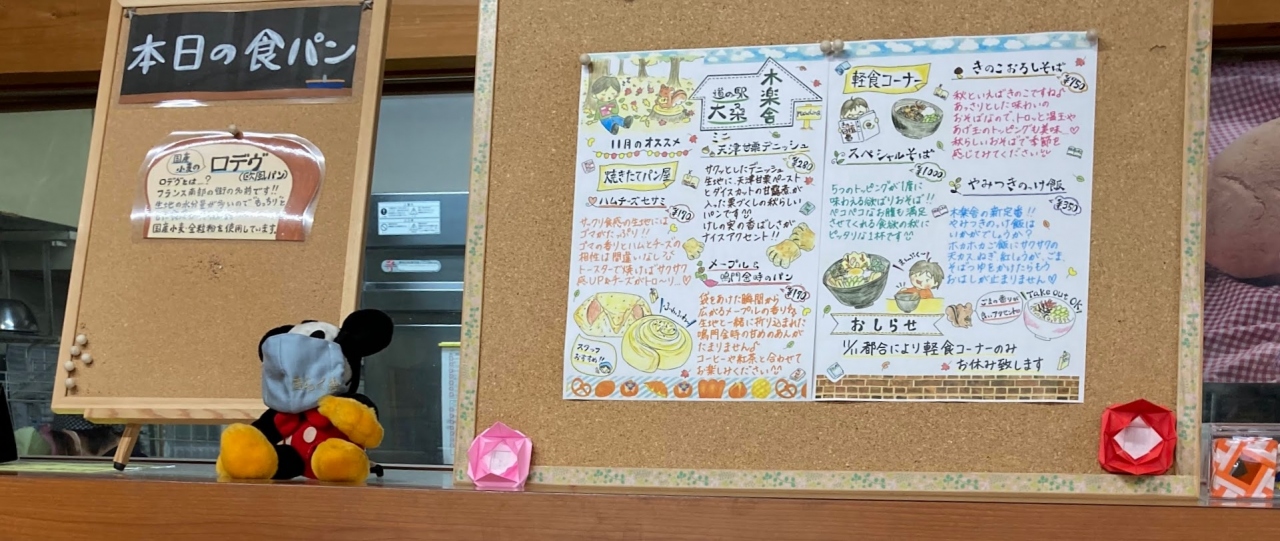 本日の食パン
国産
小麦の
ロデヴ
(欧風パン)
ロデヴとは…?
フランス南部の街の名前です!!
生地の水分量が多いので もっちりと
国産小麦・全粒粉を使用しています
11月のオススメ
道の駅
大桑
木楽舎
焼きたてパン屋
ハムチーズセサミ
¥170
サックリ食感の生地には
ゴマがたっぷり!!
ゴマの香りとハムとチーズの
相性は間違いなし♪
トースターで焼けばサクサク
感UP&チーズがトロ〜リ…♡
ふわふわ
スタッフ
おすすめ!!
ミニ
天津甘栗デニッシュ
¥280
サクッとしたデニッシュ
生地に、天津甘栗ペースト
とダイスカットの甘露煮が
入った栗づくしの秋らしい
パンです
けしの実の香ばしさが
ナイスアクセント!!
メープル&
鳴門金時のパン
¥190
袋をあけた瞬間から
広がるメープルの香り
生地と一緒に折り込まれた
鳴門金時の甘めのあんが
たまりません♪
コーヒーや紅茶と合わせて
お楽しみください
軽食コーナー
スペシャルそば
¥1000
5つのトッピングが1度に
味わえる欲ばりおそば!!
ペコペコなお腹も満足
させてくれる食欲の秋に
ピッタリな1杯です
きのこおろしそば
秋といえばきのこですね♪
あっさりとした味わいの
おそばなので、トロッと温玉や
あげ玉のトッピングも美味…♡
秋らしいおそばで季節を
感じてみてください
やみつきのっけ飯
¥350
木楽舎の新定番!!
やみつきのっけ飯は
いかがでしょうか?
ホカホカご飯にサクサクの
天カス、ねぎ、紅しょうが、ごま、
そばつゆをかけたらもう
おはしが止まりません♡
ごまの香りが
Take out OK!
おしらせ
11/11、都合により軽食コーナーのみ
お休み致します